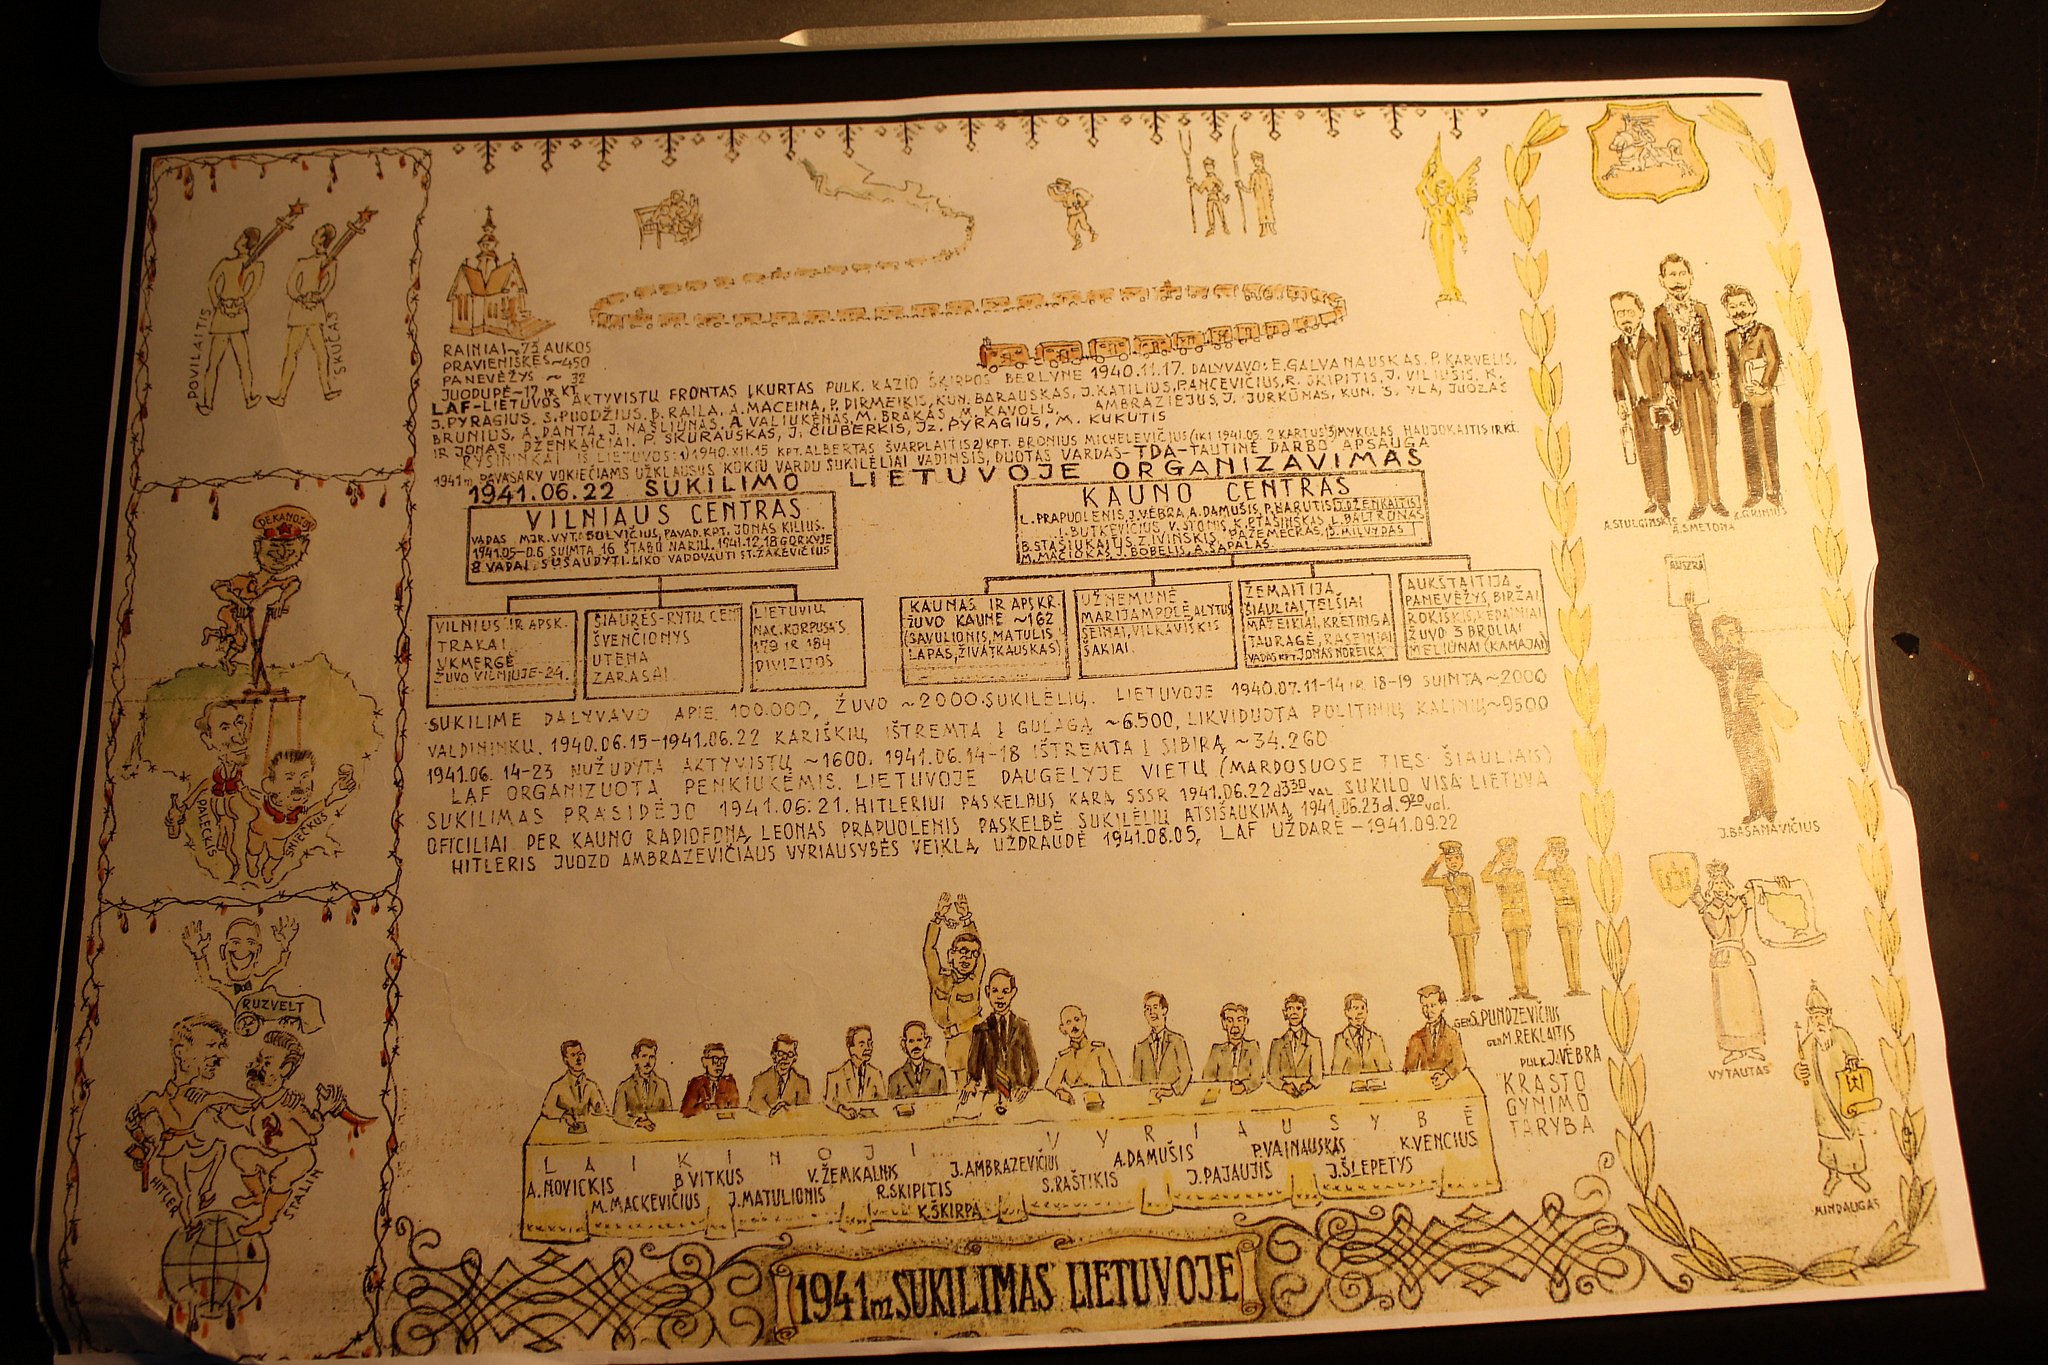 POVILAITIS
SKUČAS
RAINIAI~73 AUKOS
PRAVIENIŠKĖS~450
PANEVĖŽYS ~ 32
JUODUPĖ-17 ir kt.
LAF-LIETUVOS AKTYVISTŲ FRONTAS ĮKURTAS PULK. KAZIO ŠKIRPOS BERLYNE 1940.11.17. DALYVAVO: E.GALVANAUSKAS, P. KARVELIS,
J.PYRAGIUS, S.PUODŽIUS, B.RAILA, A.MACEINA, P.DIRMEIKIS, KUN.BARAUSKAS, J.KATILIUS, PANCEVIČIUS, R. SKIPITIS, J. VILIUŠIS, K.
BRUNIUS, A.DANTA, J.NAŠLIŪNAS, A.VALIUKĖNAS, M.BRAKAS, M. KAVOLIS, AMBRAZIEJUS, J. JURKŪNAS, KUN. S. YLA, JUOZAS
IR JONAS DŽENKAIČIAI. P. SKURAUSKAS, J. ČIUBERKIS, Iz. PYRAGIUS, M. KUKUTIS
RYŠININKAI IŠ LIETUVOS: 1) 1940.XII.15 KPT. ALBERTAS ŠVARPLAITIS 2) KPT. BRONIUS MICHELEVIČIUS (IKI 1941.05. 2 KARTUS) 3) MYKOLAS NAUJOKAITIS IR KT.
1941 m PAVASARY VOKIEČIAMS UŽKLAUSUS KOKIU VARDU SUKILĖLIAI VADINSIS, DUOTAS VARDAS-TDA-TAUTINĖ DARBO APSAUGA
1941.06.22 SUKILIMO LIETUVOJE ORGANIZAVIMAS
VILNIAUS CENTRAS
VADAS MJR. VYT. BULVIČIUS, PAVAD. KPT. JONAS KILIUS.
1941.05-06 SUIMTA 16 ŠTABO NARIŲ. 1941.12.18 GORKYJE
8 VADAI, SUŠAUDYTI. LIKO VADOVAUTI ST. ŽAKEVIČIUS
KAUNO CENTRAS
L. PRAPUOLENIS, J. VĖBRA, A. DAMUŠIS, P. NARUTIS, J. DŽENKAITIS
I. BUTKEVIČIUS, V. STONIS, K. PTAŠINSKAS, L. BALTRONAS
B. STASIUKAITIS, Z. IVINSKIS, PAŽEMECKAS, B. MILVYDAS
M. MAČIOKAS, J. BOBELIS, A. SAPALAS
VILNIUS IR APSK.
TRAKAI
UKMERGĖ
ŽUVO VILNIUJE-24.
ŠIAURĖS-RYTŲ CEN
ŠVENČIONYS
UTENA
ZARASAI
LIETUVIŲ
NAC. KORPUSAS
179 IR 184
DIVIZIJOS
KAUNAS IR APSKR.
ŽUVO KAUNE ~162
(SAVULIONIS, MATULIS
LAPAS, ŽIVATKAUSKAS)
UŽNEMUNĖ
MARIJAMPOLĖ, ALYTUS
SEINAI, VILKAVIŠKIS
ŠAKIAI
ŽEMAITIJA
ŠIAULIAI, TELŠIAI
MAŽEIKIAI, KRETINGA
TAURAGĖ, RASEINIAI
VADAS KPT. JONAS NOREIKA
AUKŠTAITIJA
PANEVĖŽYS, BIRŽAI
ROKIŠKIS, KĖDAINIAI
ŽUVO 3 BROLIAI
MELIŪNAI (KAMAJAI)
SUKILIME DALYVAVO APIE 100.000, ŽUVO ~2000 SUKILĖLIŲ. LIETUVOJE 1940.07.11-14 IR 18-19 SUIMTA ~2000
VALDININKŲ. 1940.06.15-1941.06.22 KARIŠKIŲ IŠTREMTA Į GULAGĄ ~6.500, LIKVIDUOTA POLITINIŲ KALINIŲ ~9500
1941.06. 14-23 NUŽUDYTA AKTYVISTŲ ~1600. 1941.06.14-18 IŠTREMTA Į SIBIRĄ ~34.260
LAF ORGANIZUOTA PENKIUKĖMIS. LIETUVOJE DAUGELYJE VIETŲ (MARDOSUOSE TIES ŠIAULIAIS)
SUKILIMAS PRASIDĖJO 1941.06.21. HITLERIUI PASKELBUS KARĄ SSSR 1941.06.22 d 3 30 val SUKILO VISA LIETUVA
OFICILIAI PER KAUNO RADIOFONĄ, LEONAS PRAPUOLENIS PASKELBĖ SUKILĖLIŲ ATSIŠAUKIMĄ, 1941.06.23 d. 9 20 val.
HITLERIS JUOZO AMBRAZEVIČIAUS VYRIAUSYBĖS VEIKLĄ, UŽDRAUDĖ 1941.08.05, LAF UŽDARĖ - 1941.09.22
DEKANOZOV
PALECKIS
SNIEČKUS
RUZVELT
HITLER
STALIN
A. STULGINSKIS
A. SMETONA
K. GRINIUS
AUSZRA
J. BASANAVIČIUS
VYTAUTAS
MINDAUGAS
GEN. S. PUNDZEVIČIUS
GEN. M. REKLAITIS
PULK. J. VĖBRA
"KRAŠTO
GYNIMO
TARYBA
LAIKINOJI VYRIAUSYBĖ
A. NOVICKIS B VITKUS V. ŽEMKALNIS J. AMBRAZEVIČIUS A. DAMUŠIS P. VAINAUSKAS K. VENCIUS
M. MACKEVIČIUS J. MATULIONIS R. SKIPITIS S. RAŠTIKIS J. PAJAUJIS J. ŠLEPETYS
K. ŠKIRPA
1941 m SUKILIMAS LIETUVOJE